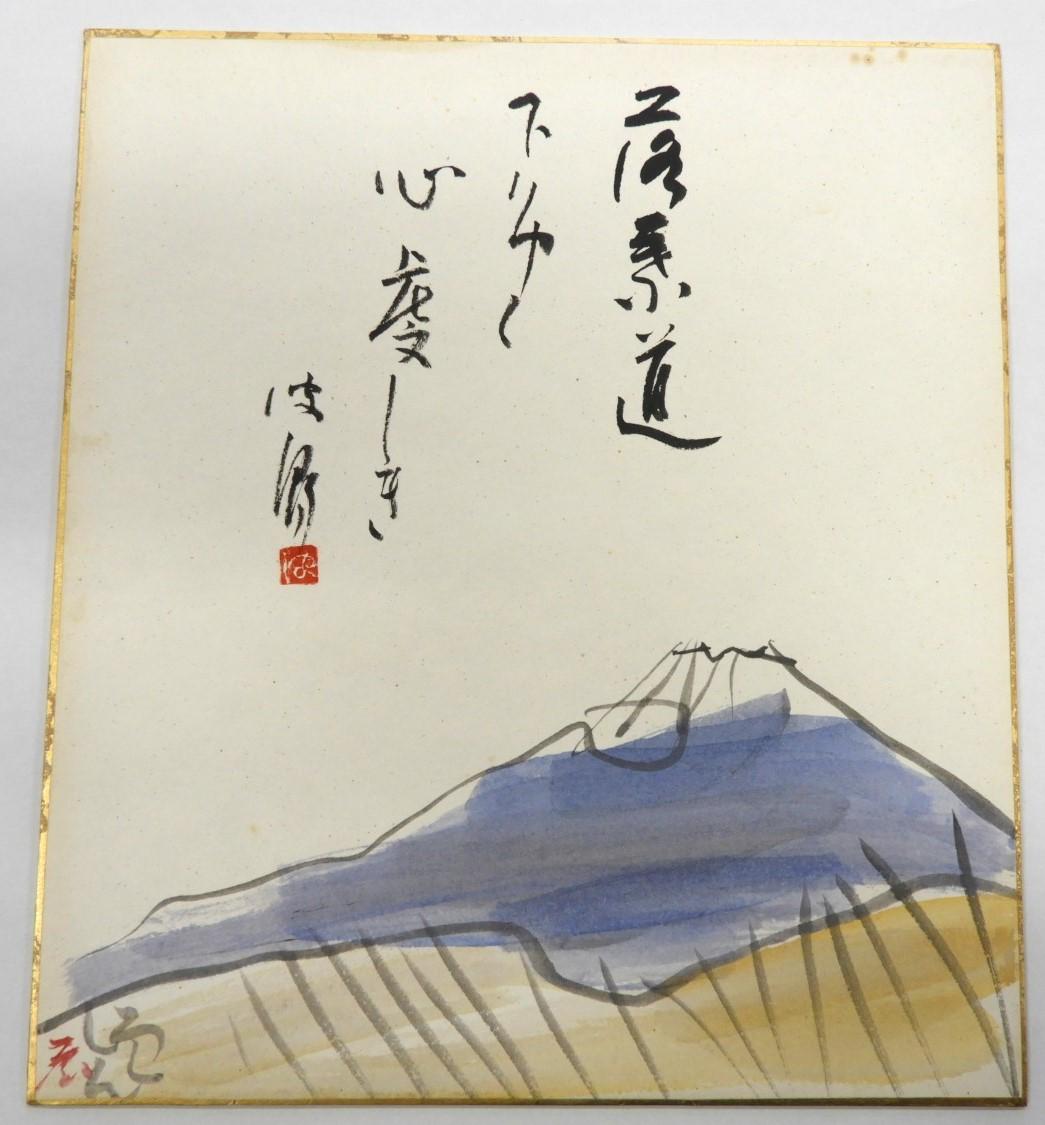 落葉道
下りゆく
心虔しき
波郷